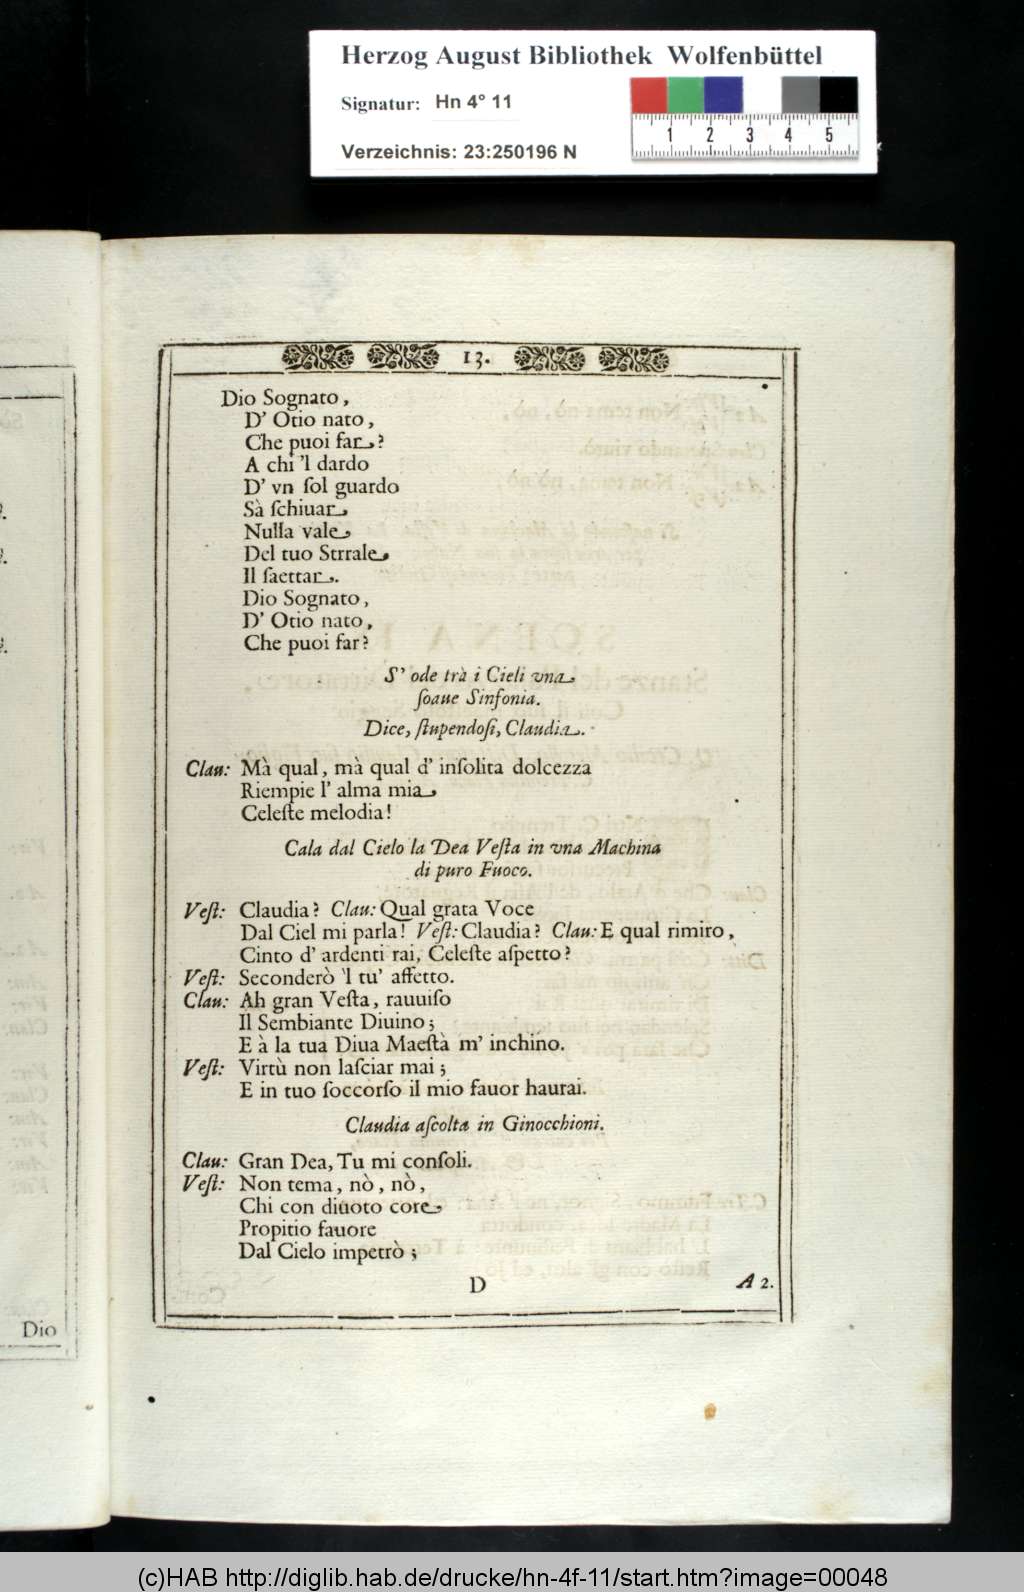 Herzog August Bibliothek Wolfenbüttel
Signatur: Hn 4° 11
Verzeichnis: 23:250196 N
1 2 3 4 5
13.
Dio Sognato,
D' Otio nato,
Che puoi far?
A chi 'l dardo
D' vn ſol guardo
Sà ſchiuar
Nulla vale
Del tuo Strrale
Il ſaettar.
Dio Sognato,
D' Otio nato,
Che puoi far?
S' ode trà i Cieli vna
ſoaue Sinfonia.
Dice, ſtupendoſi, Claudia.
Clau: Mà qual, mà qual d' inſolita dolcezza
Riempie l' alma mia
Celeſte melodia!
Cala dal Cielo la Dea Veſta in vna Machina
di puro Fuoco.
Veſt: Claudia? Clau: Qual grata Voce
Dal Ciel mi parla! Veſt: Claudia? Clau: E qual rimiro,
Cinto d' ardenti rai, Celeſte aſpetto?
Veſt: Seconderò 'l tu' affetto.
Clau: Ah gran Veſta, rauuiſo
Il Sembiante Diuino;
E à la tua Diua Maeſtà m' inchino.
Veſt: Virtù non laſciar mai;
E in tuo ſoccorſo il mio fauor haurai.
Claudia aſcolta in Ginocchioni.
Clau: Gran Dea, Tu mi conſoli.
Veſt: Non tema, nò, nò,
Chi con diuoto core
Propitio fauore
Dal Cielo impetrò;
D A 2.
Dio
(c)HAB http://diglib.hab.de/drucke/hn-4f-11/start.htm?image=00048